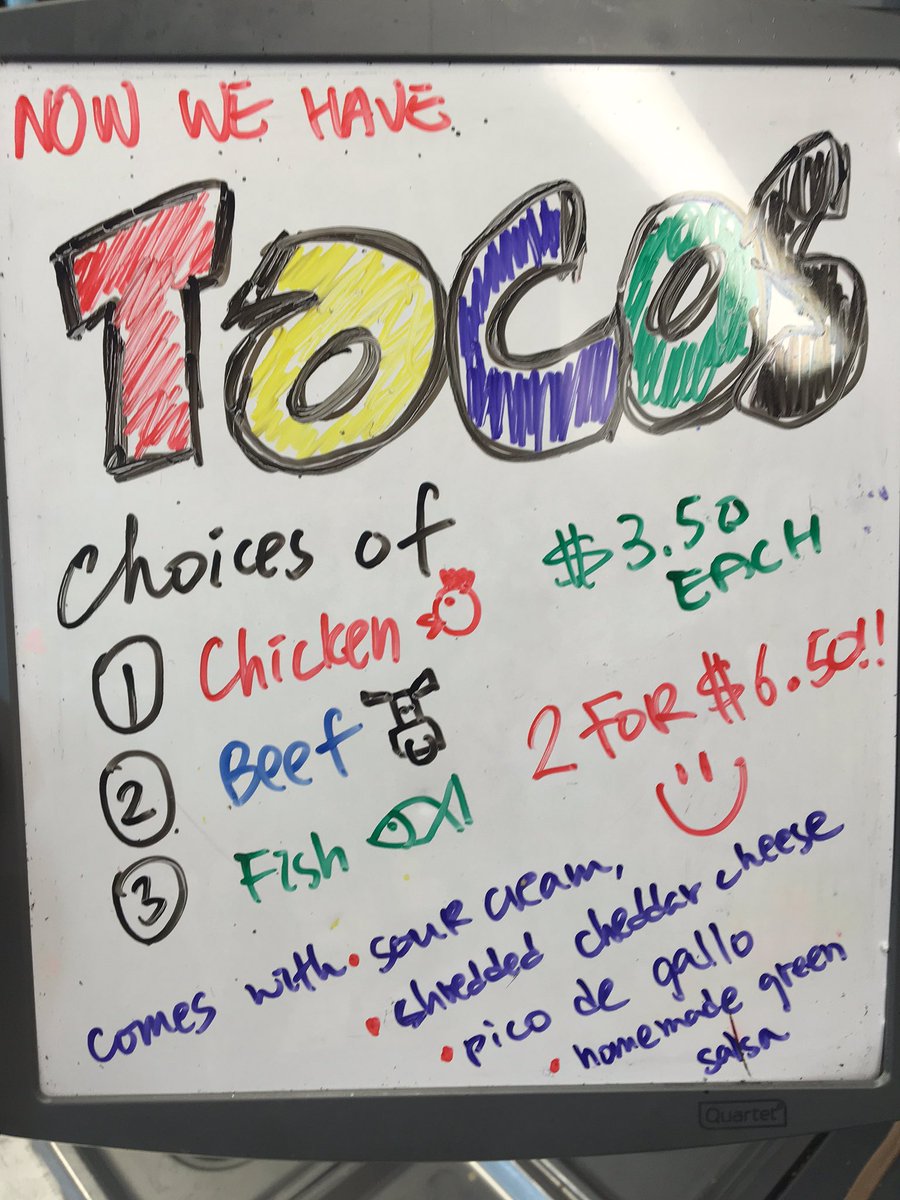 NOW WE HAVE
TOCOS
Choices of
$3.50
EACH
1 Chicken
2 Beef
3 Fish
2 FOR $6.50!!
comes with • sour cream,
• shredded cheddar cheese
• pico de gallo
• homemade green
salsa
Quartet